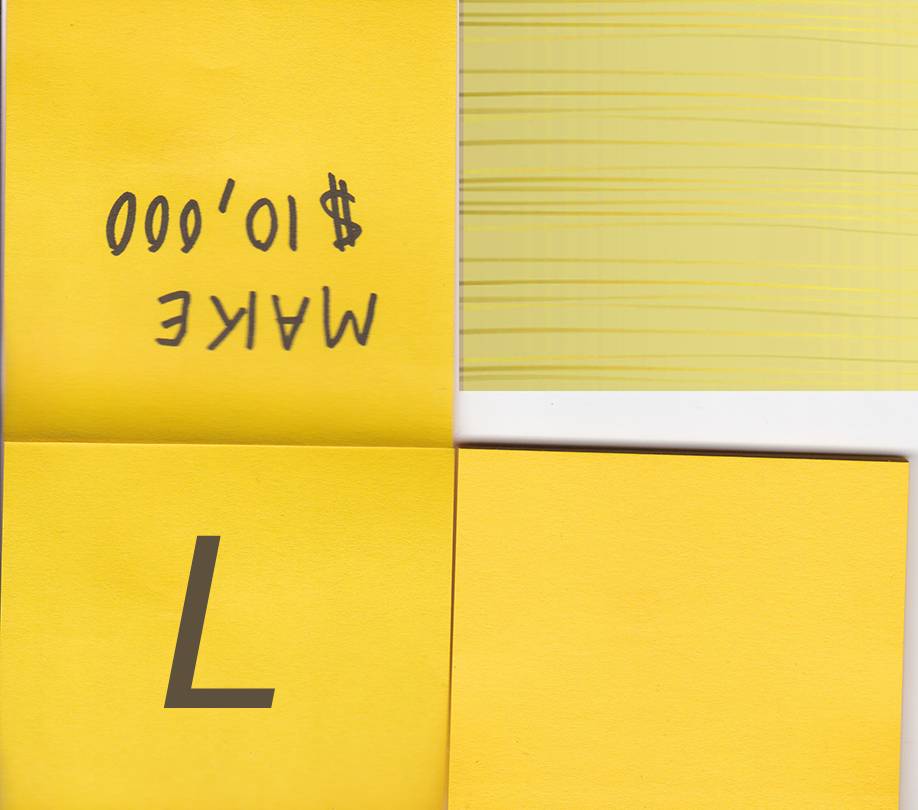 MAKE
$10,000
L